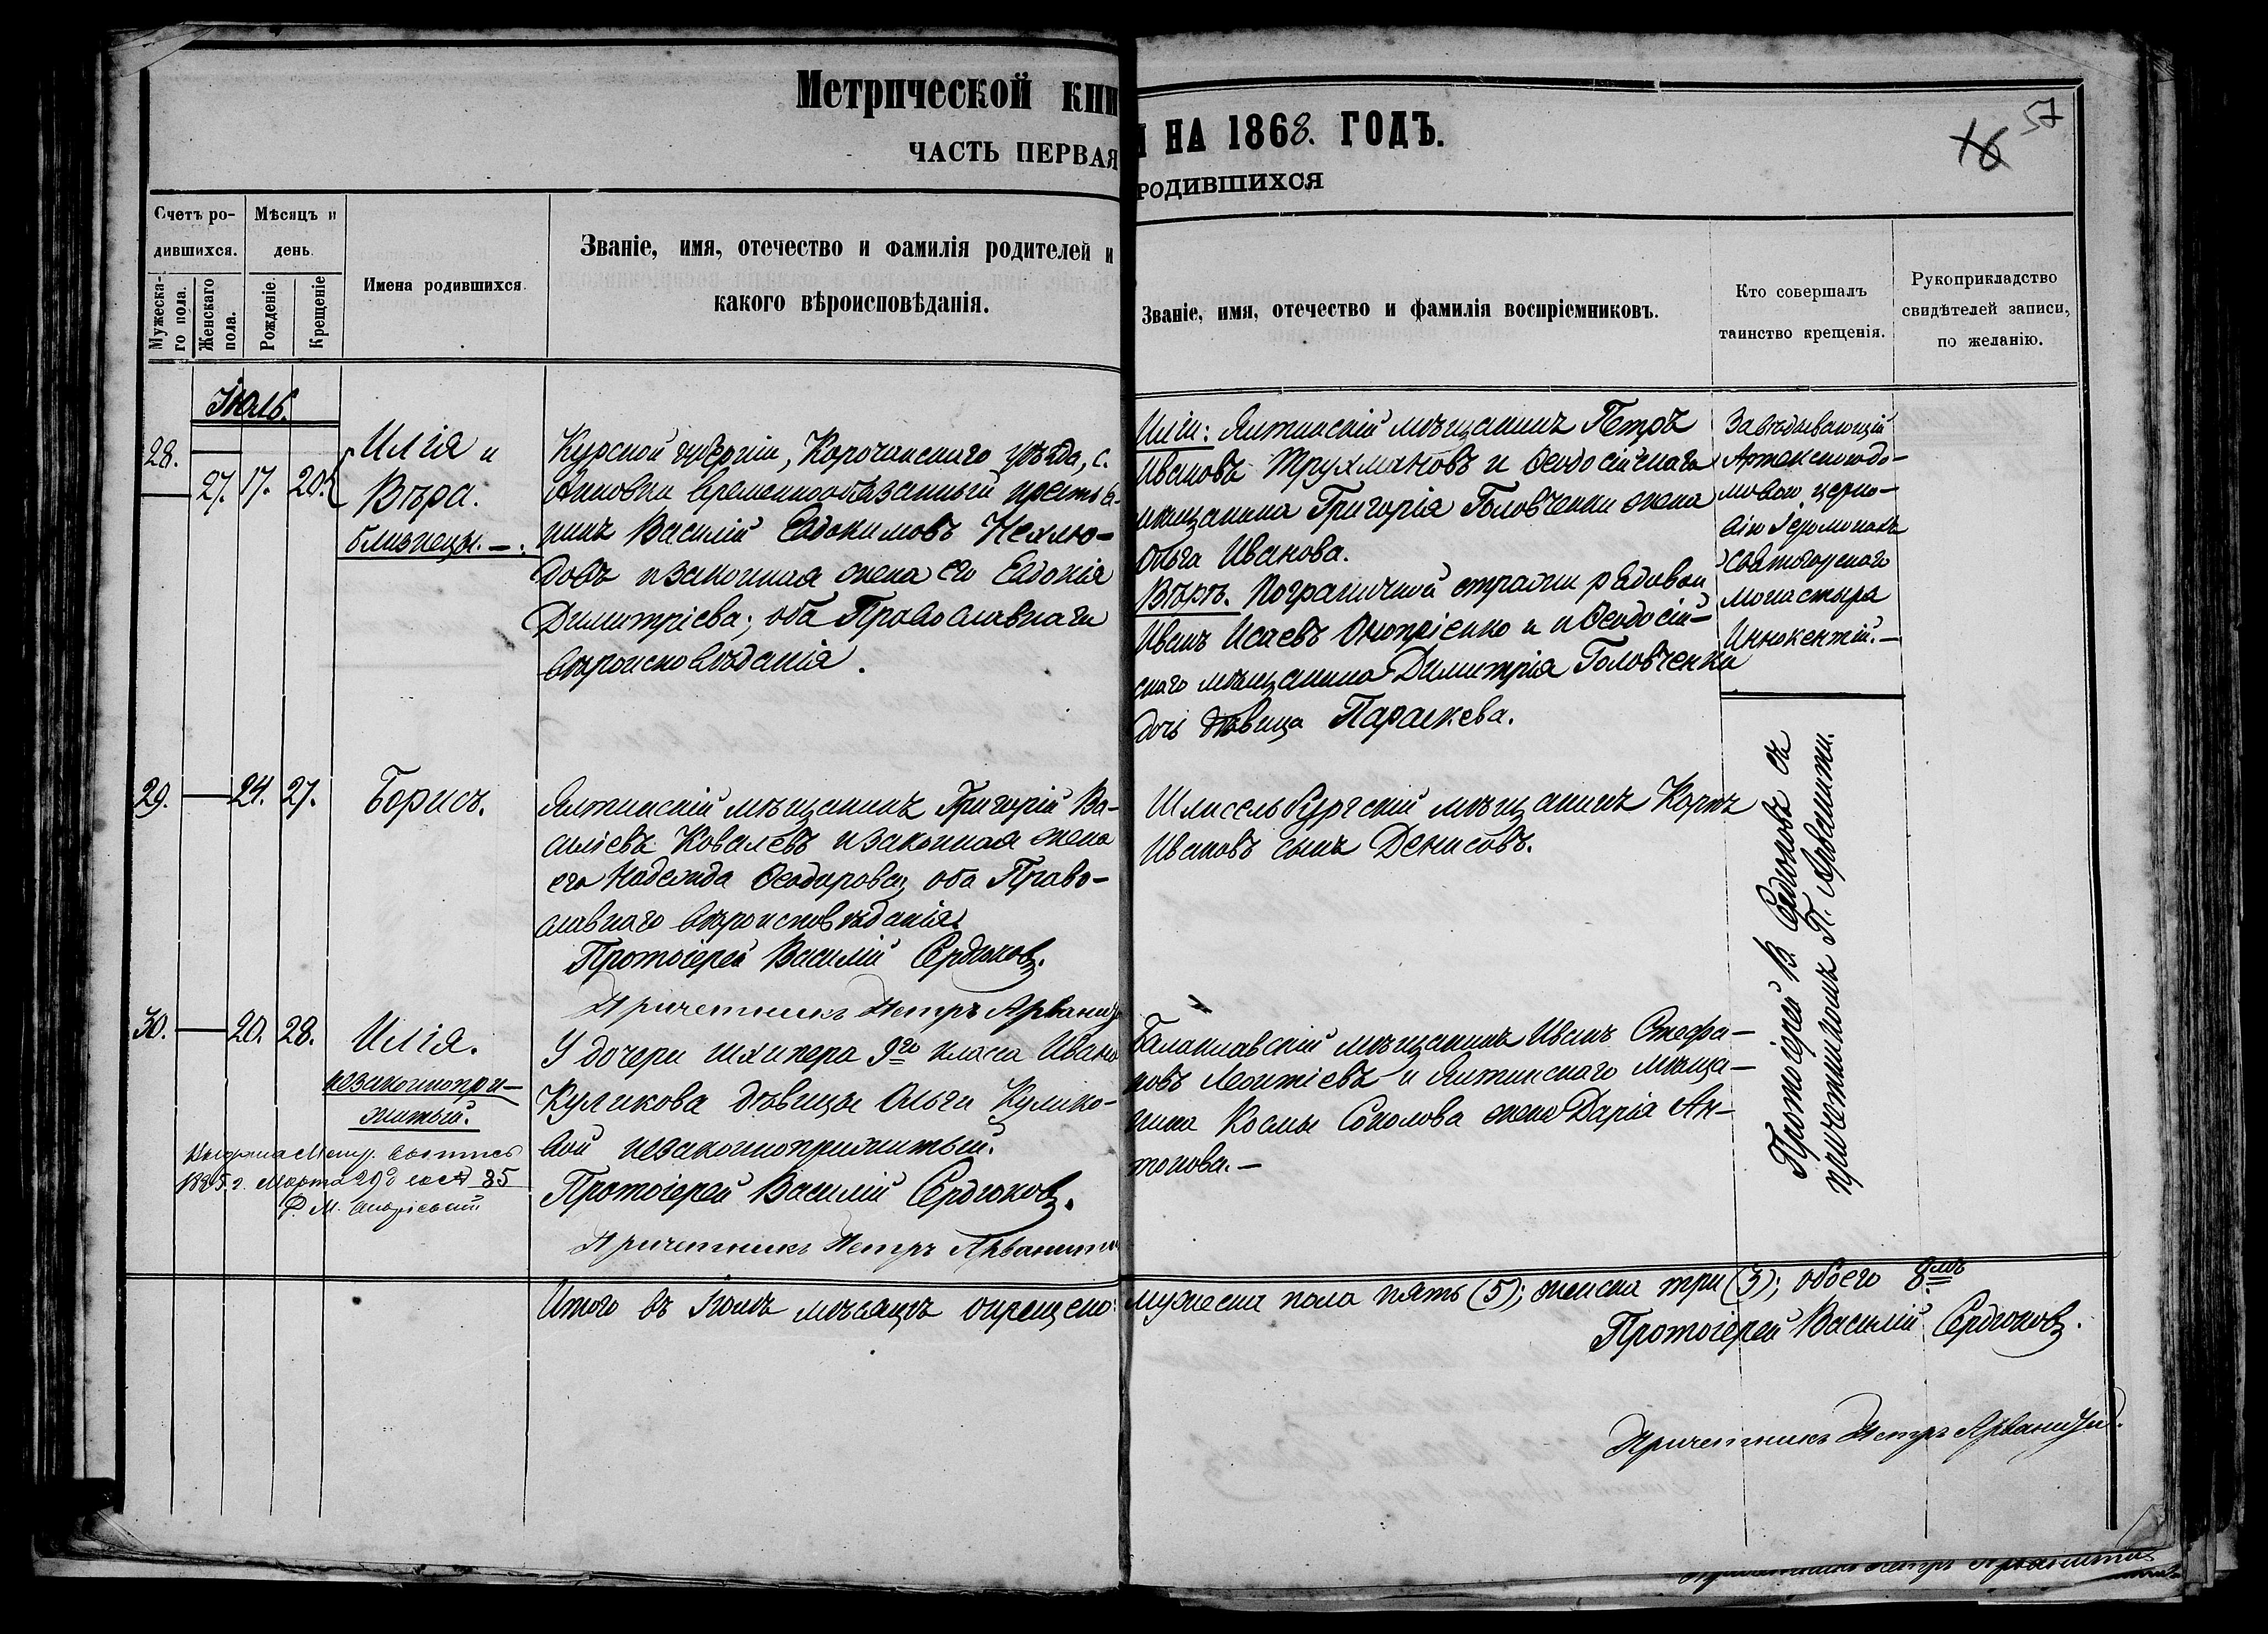 Метрической кни
ЧАСТЬ ПЕРВАЯ
НА 1868. ГОДЪ.
РОДИВШИХСЯ
16 57
Счетъ ро-
дившихся.
Мѣсяцъ и
день.
Мужеска-
го пола.
Женскаго
пола.
Рожденіе.
Крещеніе
Имена родившихся.
Званіе, имя, отечество и фамилія родителей и
какого вѣроисповѣданія.
Званіе, имя, отечество и фамилія воспріемниковъ.
Кто совершалъ
таинство крещенія.
Рукоприкладство
свидѣтелей записи,
по желанію.
Іюль.
28.
27. 17. 20.
Илія и
Вѣра.
близнецы.
Курской губерніи, Корочанскаго уѣзда, с.
временнообязанный крестья-
нинъ Василій Евдокимовъ Нехлю-
довъ и законная жена его Евдокія
Димитріева; оба Православнаго
вѣроисповѣданія.
Иліи: Ялтинскій мѣщанинъ Петръ
Ивановъ Трухмановъ и Ѳеодосійскаго
мѣщанина Григорія Головченки жена
Ольга Иванова.
Вѣрѣ. Пограничной стражи рядовой
Иванъ Исаевъ Оноприенко и Ѳеодосій-
скаго мѣщанина Димитрія Головченки
дочь дѣвица Параскева.
Завѣдывающій
Артекскою до-
мовою церко-
вію Іеромонахъ
Святогорскаго
Монастыря
Иннокентій.
29. — 24. 27.
Борисъ.
Ялтинскій мѣщанинъ Григорій Ва-
силіевъ Ковалевъ и законная жена
его Надежда Ѳеодорова; оба Право-
славнаго вѣроисповѣданія.
Протоіерей Василій Сердюковъ.
Причетникъ Петръ Арвани
Шлиссельбургскій мѣщанинъ Карпъ
Ивановъ сынъ Денисовъ.
Протоіерей В. Сердюковъ съ
причетникомъ П. Арванити.
30. — 20. 28.
Илія.
незаконнопри-
житый.
Выдана Метр. выпись
1885 г. Марта 29 д за № 85
У дочери шкипера 9го класса Ивана
Куликова дѣвицы Ольги Кулико-
вой незаконноприжитый.
Протоіерей Василій Сердюковъ.
Причетникъ Петръ Арванити
Балаклавскій мѣщанинъ Иванъ Стефа-
новъ Леонтіевъ и Ялтинскаго мѣща-
нина Космы Соколова жена Дарія Ан-
тонова.—
Итого въ Іюлѣ мѣсяцѣ окрещено: мужеска пола пять (5); женска три (3); обоего 8мь
Протоіерей Василій Сердюковъ.
Причетникъ Петръ Арваниди.
Причетникъ Петръ Арванити